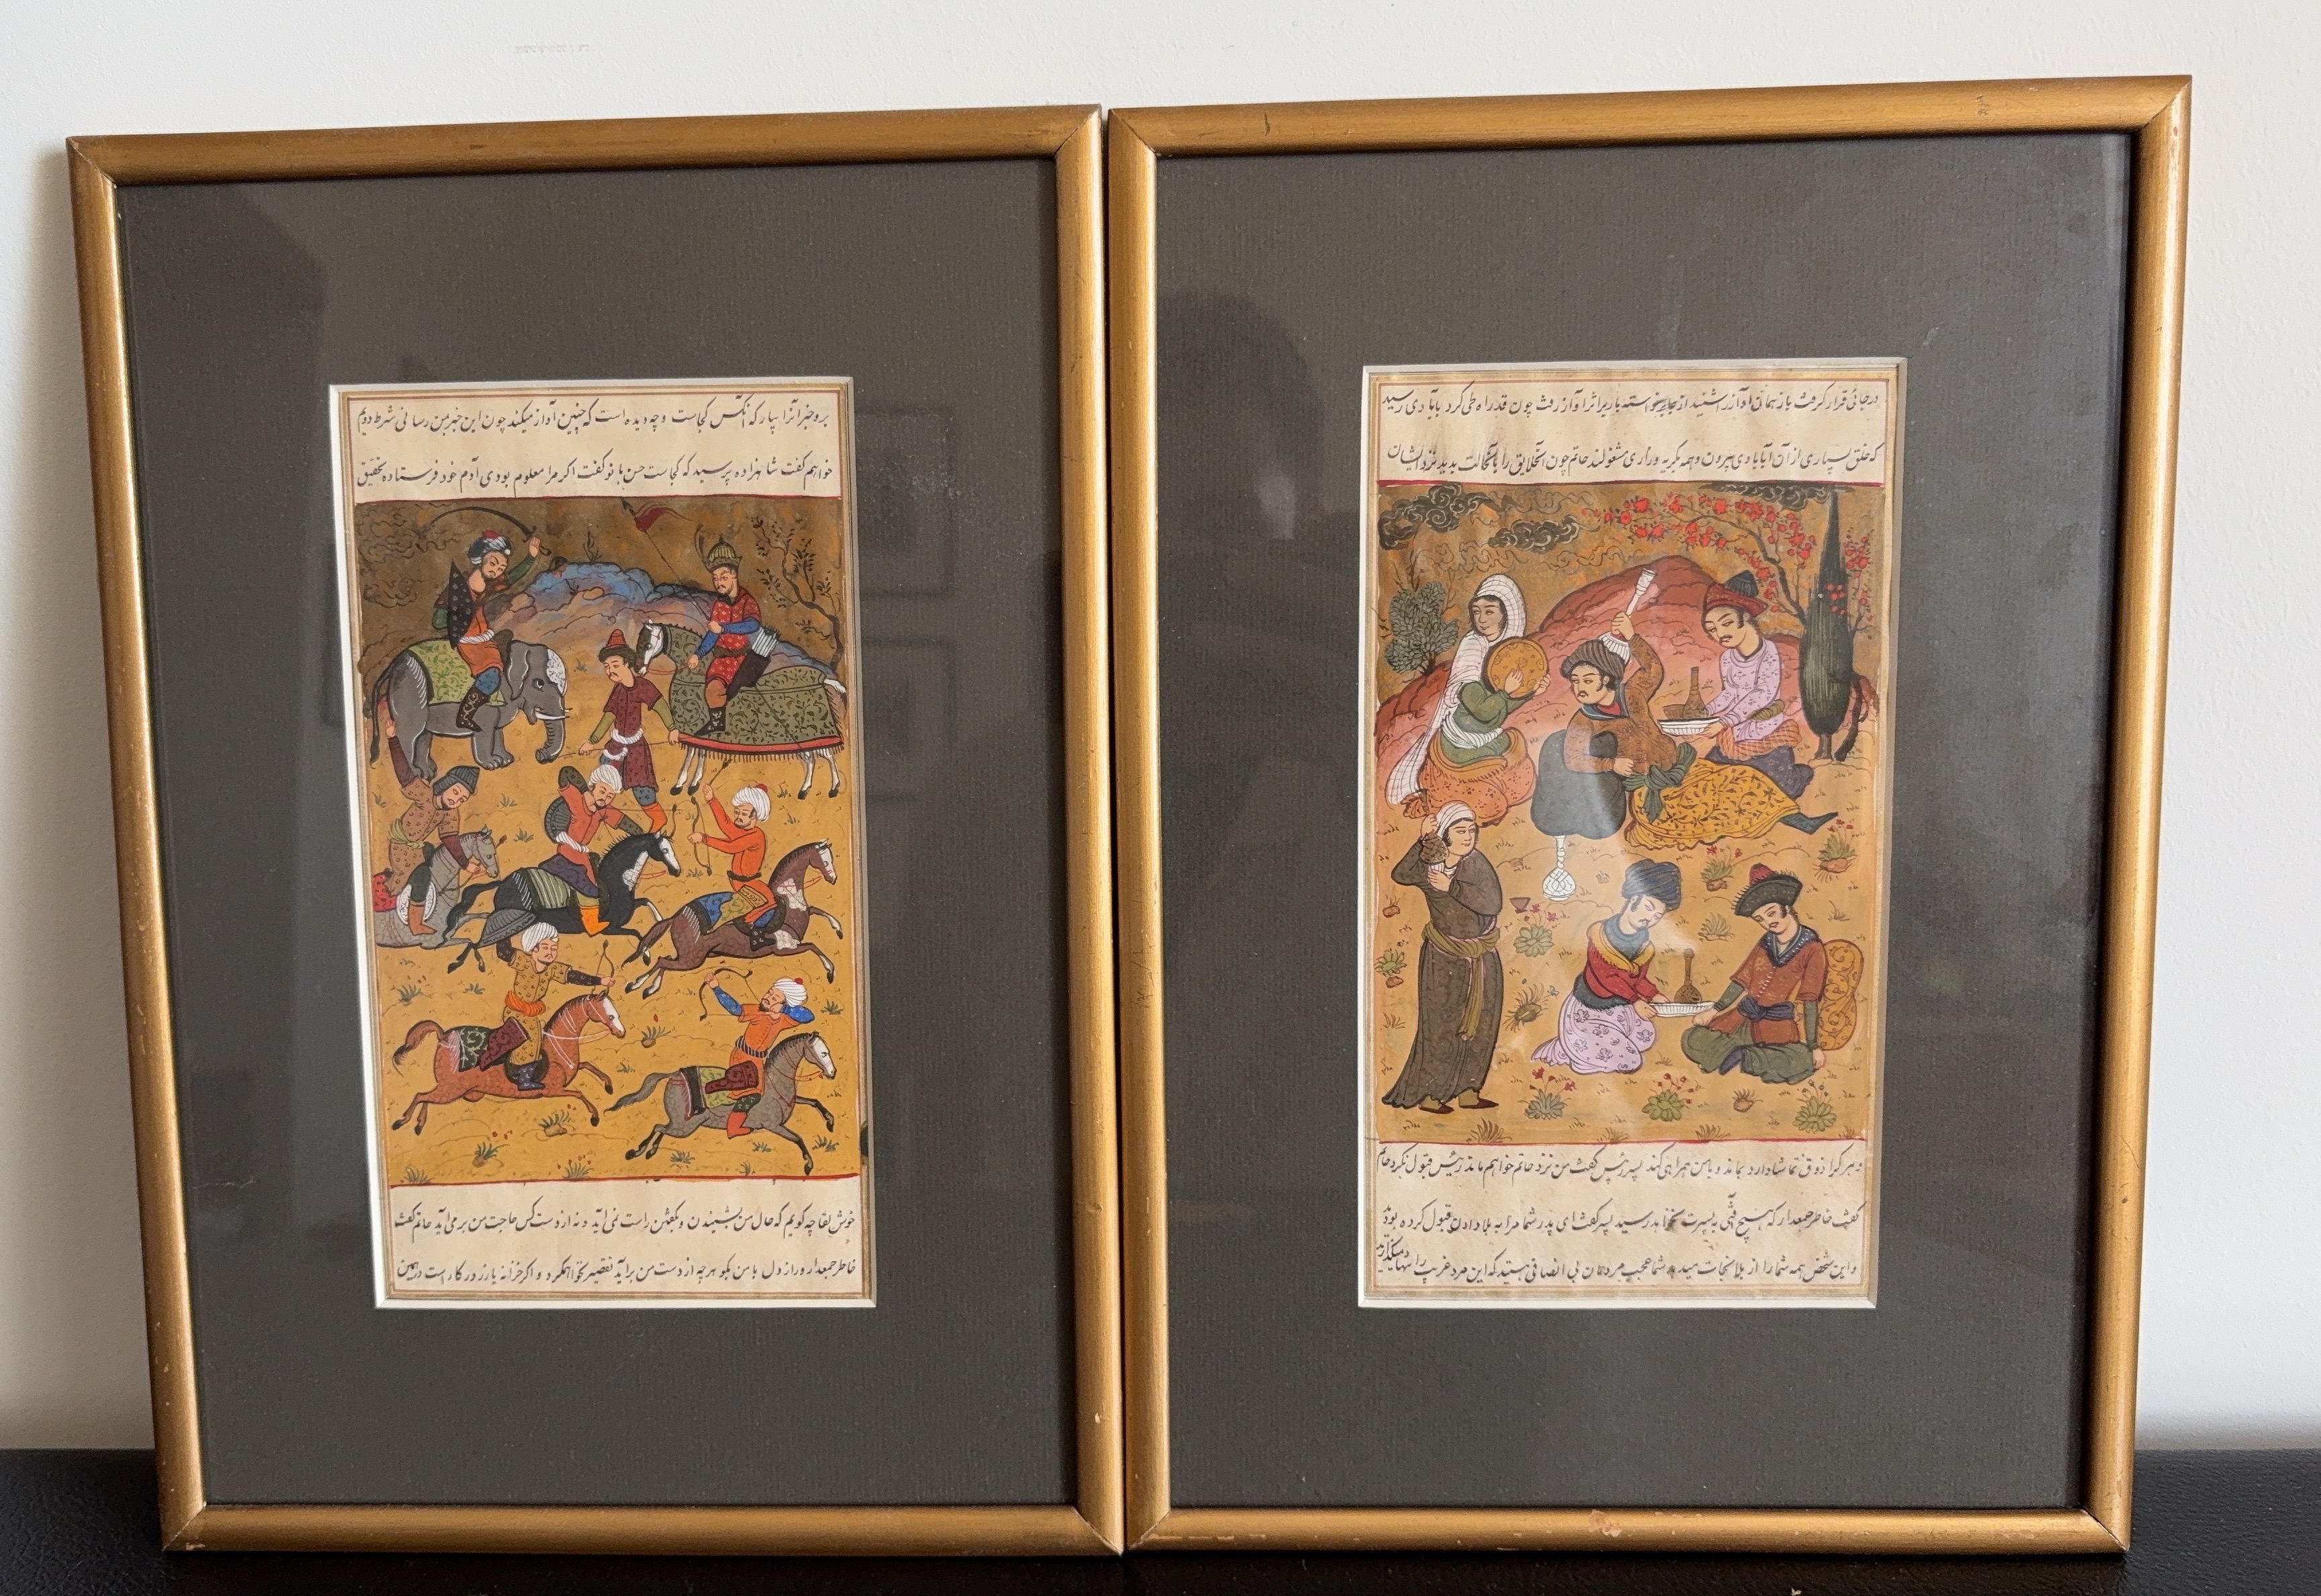 برو خبر آنرا بیار که آنکس کجاست و چه دیده است که چنین آواز میکند چون این خبر بمن رسانی شرط دویم
خواهم گفت شاهزاده پرسید که کجاست حسن بانو گفت اکر مرا معلوم بودی آدم خود فرستاده تحقیق
خوش لقا چه کویم که حال من بشنیدن و بگفتن راست نمی آید و نه از دست کس حاجت من بر می آید حاتم کفت
خاطر جمعدار و راز دل با من بکو هرچه از دست من براید تقصیر نخواهم کرد و اکر خزانه یا زر در کار است در همین
در جائی قرار کرفت باز همان آواز را شنید از جای برخواسته باز بر اثر آواز رفت چون قدر راه طی کرد بآبادی رسید
که خلق بسیاری از آن آبادی بیرون و همه بکریه و زاری مشغولند حاتم چون آنخلایق را بآنحالت بدید نزد ایشان
و هر کرا ذوق تماشا دارد بماند و با من همراهی کند پسر رئیس کفت من نزد حاتم خواهم ماند رئیس قبول نکرد حاتم
کفت خاطر جمعدار که هیچ آفتی به پسرت نخواهد رسید پسر کفت ای پدر شما مرا به بلا دادن قبول کرده بودید
و این شخص همه شما را از بلا نجات میدهد شما عجب مردمان بی انصافی هستید که این مرد غریب را تنها میگذارید